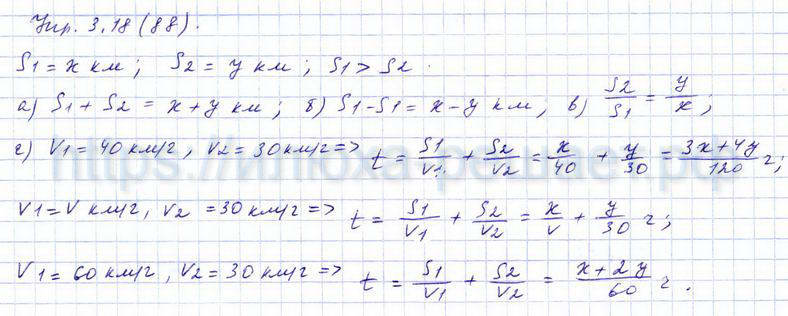 Упр. 3.18 (88).
S1 = x км; S2 = y км; S1 > S2.
а) S1 + S2 = x + y км; б) S1 - S1 = x - y км; в) S2/S1 = y/x;
г) V1 = 40 км/г, V2 = 30 км/г => t = S1/V1 + S2/V2 = x/40 + y/30 = (3x + 4y)/120 г;
V1 = V км/г, V2 = 30 км/г => t = S1/V1 + S2/V2 = x/v + y/30 г;
V1 = 60 км/г, V2 = 30 км/г => t = S1/V1 + S2/V2 = (x + 2y)/60 г.